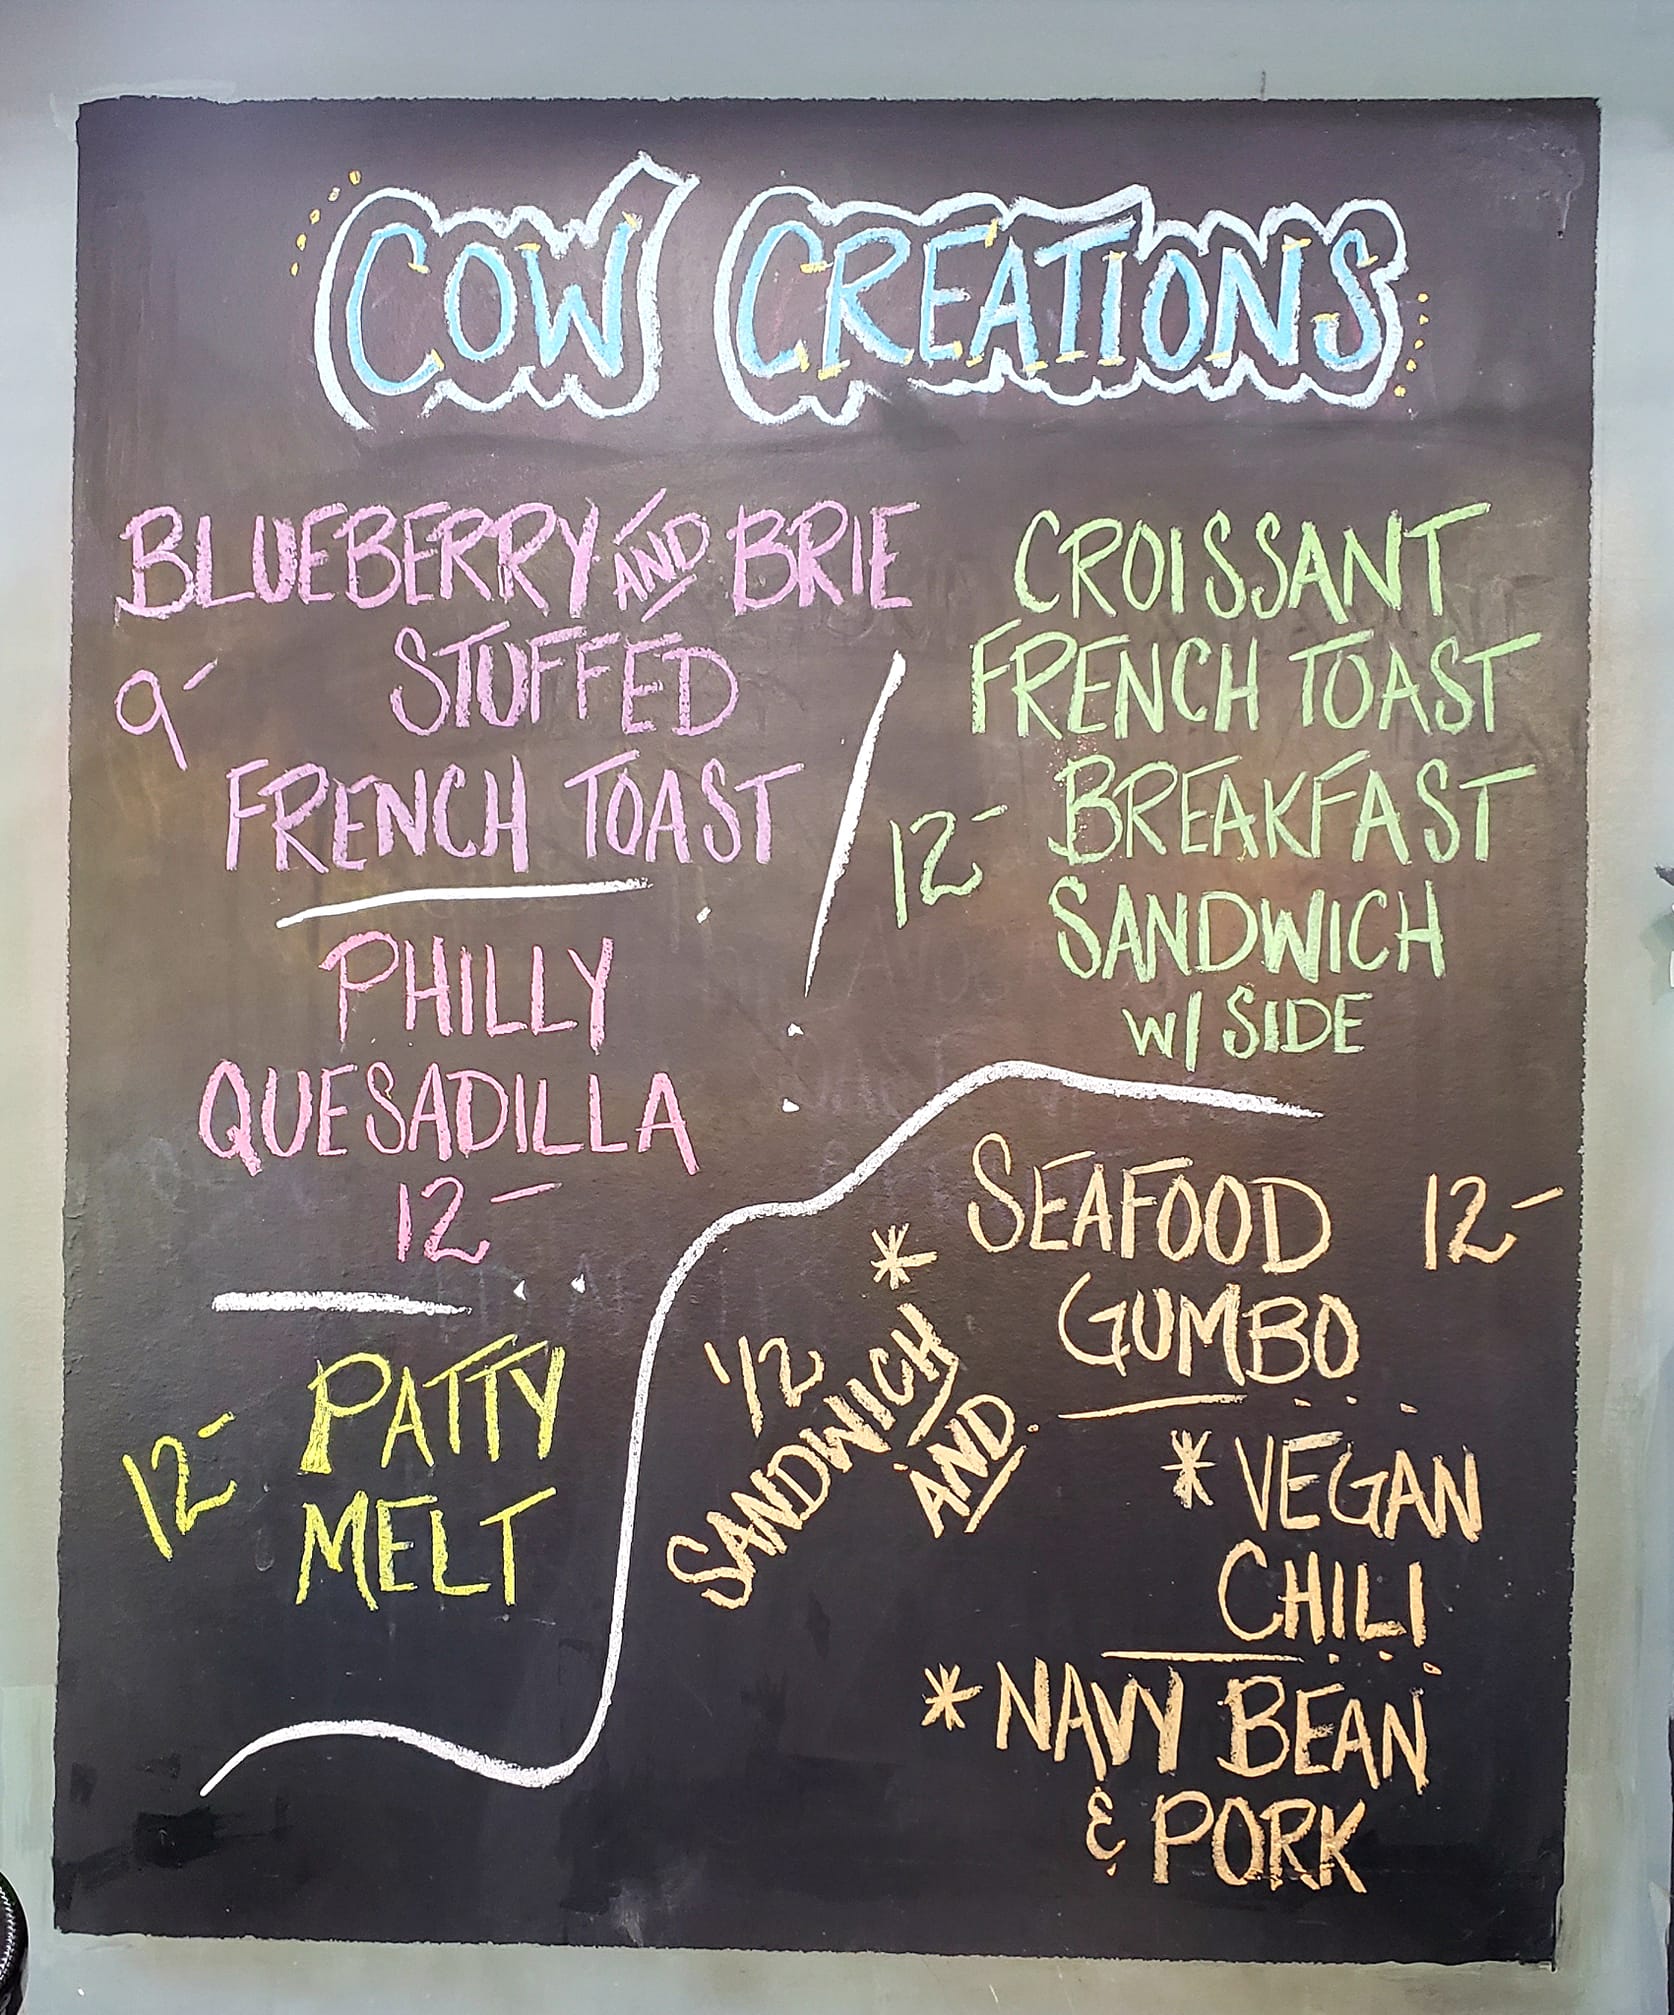 COW CREATIONS
BLUEBERRY AND BRIE
9- STUFFED
FRENCH TOAST
PHILLY
QUESADILLA
12-
12- PATTY
MELT
CROISSANT
FRENCH TOAST
12- BREAKFAST
SANDWICH
W/ SIDE
* SEAFOOD 12-
GUMBO
1/2
SANDWICH
AND
* VEGAN
CHILI
* NAVY BEAN
& PORK